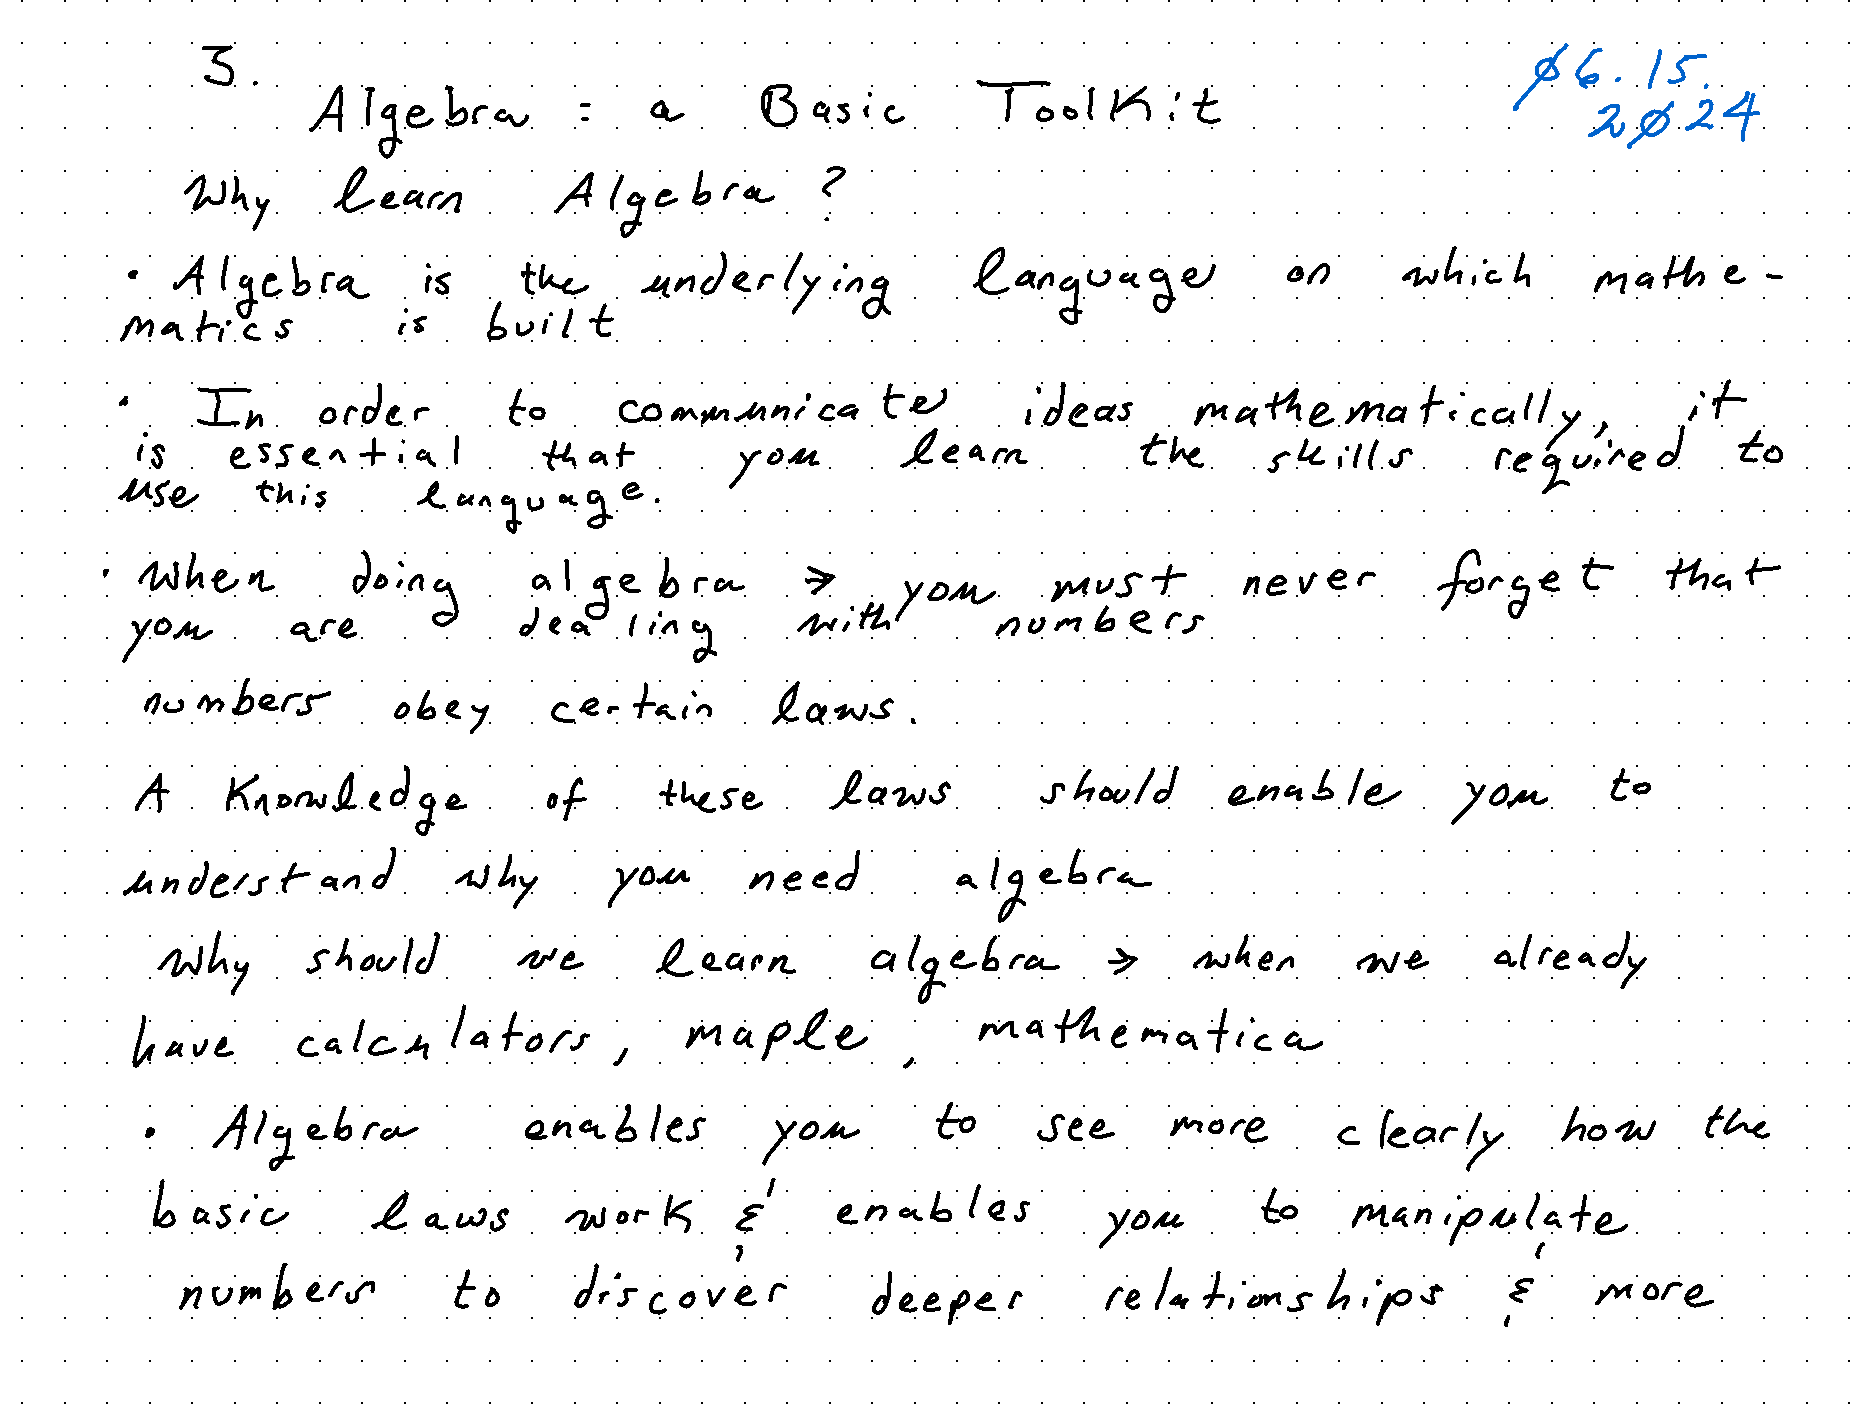 3.
Algebra : a Basic ToolKit
Ø6.15.
2Ø24
Why learn Algebra ?
• Algebra is the underlying language on which mathe-
matics is built
• In order to communicate ideas mathematically, it
is essential that you learn the skills required to
use this language.
• When doing algebra → you must never forget that
you are dealing with numbers
numbers obey certain laws.
A Knowledge of these laws should enable you to
understand why you need algebra
Why should we learn algebra → when we already
have calculators, maple, mathematica
• Algebra enables you to see more clearly how the
basic laws work & enables you to manipulate
numbers to discover deeper relationships & more